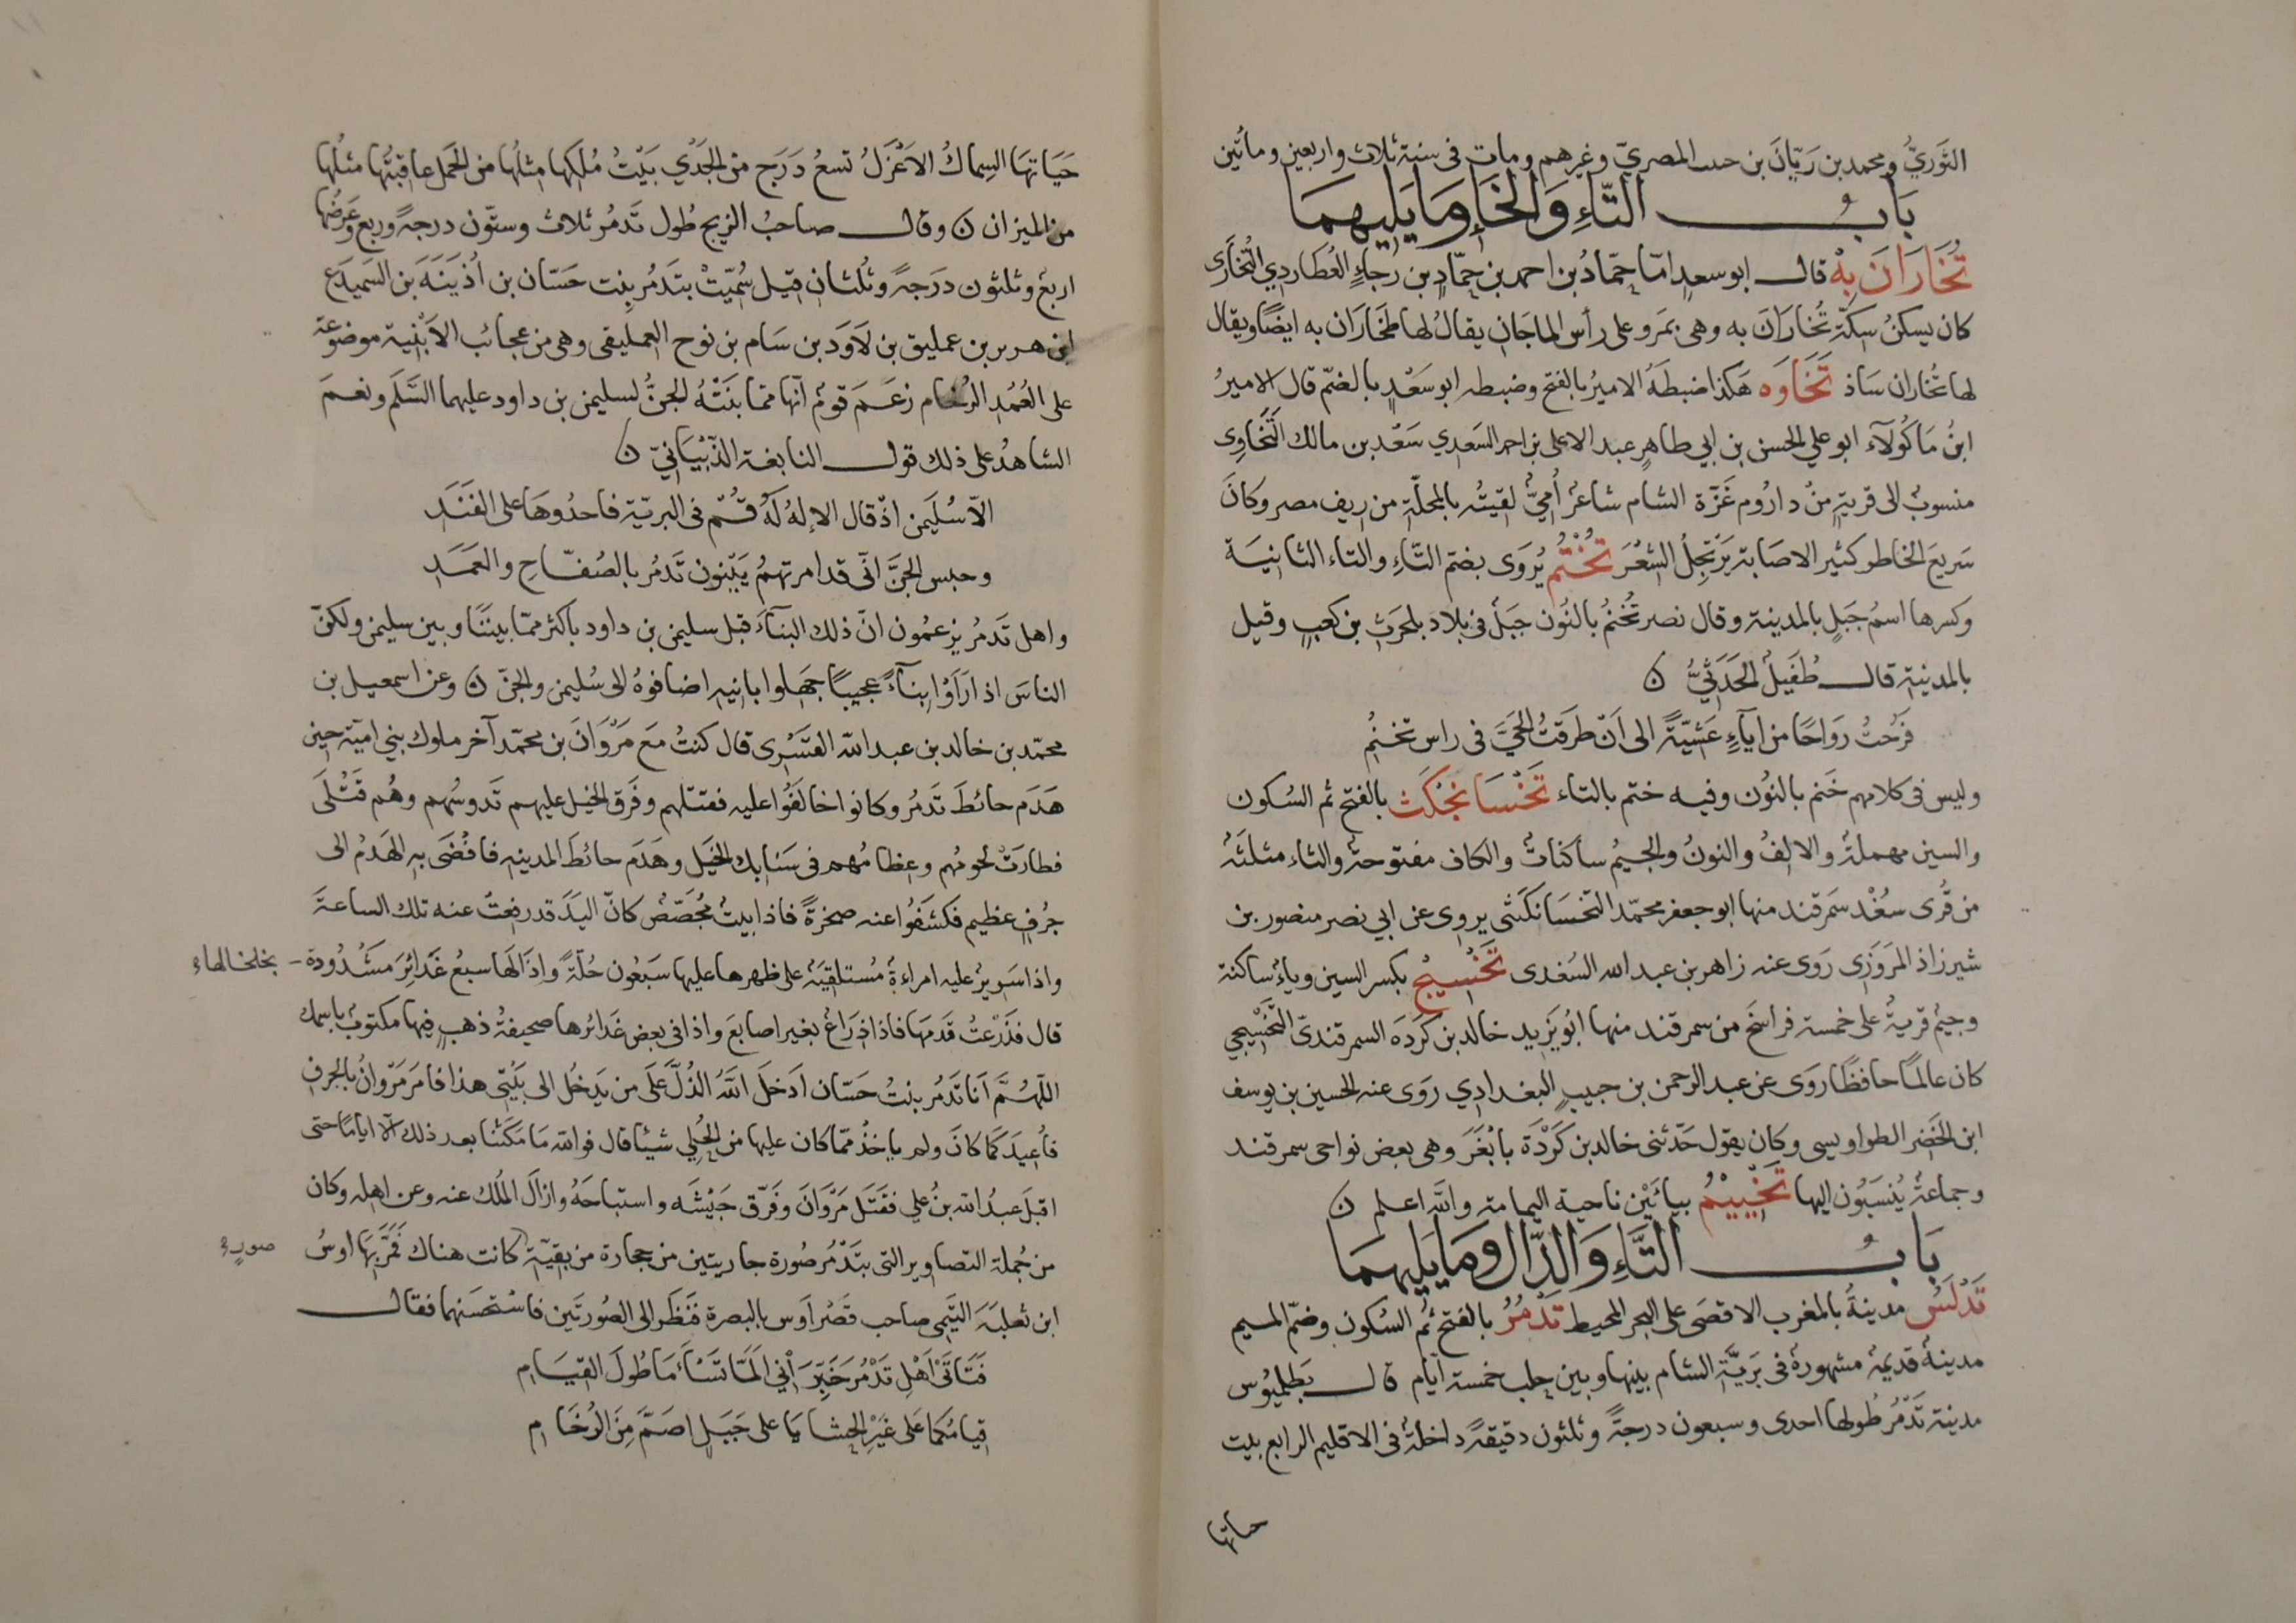 الثوريّ ومحمد بن ريّان بن حبيب المصري وغيرهم ومات فى سنة ثلاث واربعين ومائتين
باب التّاء والخاء وما يليهما
تُخَارَان بِهْ قال ابو سعد امّا حمّاد بن احمد بن حمّاد بن رجاء العُطاردي التُخارَى
كان يسكن سكّة تُخاران به وهى بمَرو على رأس الماجان يقال لها طخاران به ايضًا ويقال
لها تخاران ساذ تَخَاوَه هكذا ضبطه الامير بالفتح وضبطه ابو سعد بالضمّ قال الامير
ابن ماكولآء ابو علي الحسن بن ابي طاهر عبد الاعلى بن احمد السَعدي سَعْد بن مالك التَّخَاوِى
منسوب الى قرية من داروم غَزّة الشام شاعر أُميّ لقيتُه بالمحلّة من ريف مصر وكان
سريع الخاطر كثير الاصابة يرتجل الشعر تُخْتُم يُروى بضم التّاء والتاء الثانية
وكسرها اسم جبل بالمدينة وقال نصر تُخنم بالنون جبل فى بلاد بلحرث بن كعب وقيل
بالمدينة قال طُفيل الحَدَثيّ ن
فَرُحتُ رواحًا من اياءٍ عشيّةً الى أن طرقتُ الحيّ فى راس تخنم
وليس فى كلامهم خنم بالنون وفيه ختم بالتاء تَخْسَانْجْكَث بالفتح ثم السكون
والسين مهملة والالف والنون والجيم ساكنات والكاف مفتوحة والثاء مثلثه
من قُرى سُغْد سمرقند منها ابو جعفر محمّد التخسانكثى يروى عن ابي نصر منصور بن
شيرزاذ المروَزى روى عنه زاهر بن عبد الله السُغدى تَخْسِيج بكسر السين وياء ساكنة
وجيم قرية على خمسة فراسخ من سمرقند منها ابو يزيد خالد بن كردَه السمرقندىّ التَّخْسِيجي
كان عالمًا حافظًا روى عن عبد الرحمن بن حبيب البغدادي روى عنه الحسين بن يوسف
ابن الخضر الطواويسى وكان يقول حدّثنى خالد بن كَرْدَة بابْغَر وهى بعض نواحى سمرقند
وجماعة يُنسَبُون اليها تَخْيِيْم بيائَيْن ناحية اليمامة والله اعلم ن
باب التّاء والدّال وما يليهما
تَدْلَس مدينة بالمغرب الاقصى على البحر المحيط تَدْمُرُ بالفتح ثم السكون وضمّ الميم
مدينة قديمة مشهورة فى بَريّة الشام بينها وبين حلب خمسة ايّام قال بَطْلِميُوس
مدينة تَدْمُر طُولها احدى وسبعون درجةً وثلثون دقيقةً داخلة فى الاقليم الرابع بيت
حياتها
حَيَاتها السِماك الاَعْزَلُ تسع دَرَج من الجَدْي بَيْتُ مُلكِها مثلها من الحمل عاقبتُها مثلها
من الميزان ن وقال صاحبُ الزيج طُول تَدمُر ثلاث وستّون درجةً وربع وعَرضها
اربع وثلثون دَرَجةً وثُلثان قيل سُمّيَتْ بتَدمُر بنت حَسّان بن أُذَينَة بن السَميدَع
ابن هرير بن عمليق بن لاوَد بن سَام بن نوح العمليقى وهى من عجائب الابْنية موضوعة
على العُمُد الرُخام زعَم قوم انّها ممّا بنَتْه الجنّ لسليمن بن داود عليهما السَّلَم ونعمَ
الشاهدُ على ذلك قول النابغة الذُّبيَانيّ ن
الّا سُلَيمن اذ قال الإلهُ لَهُ قُم فى البريّة فاحدُوهَا على الفَنَد
وحبس الجنَّ انّى قد امرتهمُ يبنون تَدمُر بالصُفّاحِ والعَمَد
واهل تَدمُر يزعمون انّ ذلك البنآءَ قبل سليمن بن داود باكثر ممّا بيننَا وبين سليمن ولكنّ
الناسَ اذا رَأَوْا بنآءً عجيبًا جهلوا بانيه اضافوهُ الى سُليمن والجنّ ن وعن اسمعيل بن
محمّد بن خالد بن عبد الله القَسْرى قال كنتُ مع مَرْوَانَ بن محمّد آخر ملوك بني اميّة حين
هَدَم حائطَ تَدمُر وكانوا خالَفُوا عليه فقتلهم وفَرق الخيل عليهم تَدوسُهم وهُم قَتْلَى
فطارتْ لحومُهم وعظامُهم فى سَنابك الخيل وهَدَم حائطَ المدينه فافْضَى به الهَدمُ الى
جُرف عظيم فكشَفُوا عنه صخرةً فاذا بيتٌ مُجصّصٌ كانّ اليَدَ قد رفعتْ عنه تلك الساعةَ
واذا سَرير عليه امراءة مُستلقيَة على ظهرها عليها سَبعُون حُلّةً واِذَا لهَا سبعُ غَدَائِر مَشْدُودة
بخلخالهاء
قال فذَرْعتُ قَدمَها فاذا ذِرَاع بغير اصابعَ واذا فى بعض غَدائرها صحيفةُ ذهب فيها مكتوب باسمك
اللّهُمَّ اَنا تَدمُر بنتُ حَسّان ادخل الله الذُلّ على من يدخُل الى بَيْتى هذا فامَر مَرْوان بالجرف
فأُعيدَ كَمَا كانَ ولم ياخذ ممّا كان عليها من الحُلِي شيئًا قال فوالله مَا مَكَثْنا بعد ذلك الا ايامًا حتى
اقبلَ عبدُ الله بن علي فقَتَل مَرْوَانَ وفَرّق جَيْشَه واستباحَهُ وازالَ المُلك عنه وعن اهله وكان
من جُملة التصاوير التى بتَدْمُر صُورة جاريتين من حجارة من بقيّة كانت هناك فمَرّ بهَا اوسُ
صورٍ
ابن ثعلبَة التَيْمى صاحب قَصْر اَوس بالبصرة فنَظَر الى الصُورتَين فاستحسَنهما فقال
فَتَاتَىْ اَهْلِ تَدْمُر خَبِّرَانِي اَلَمّا تَسْأَمَا طُولَ القِيَام
قيامُكما على غَيْرِ الحشايَا على جَبَلٍ اصَمَّ مِنَ الرُخَام